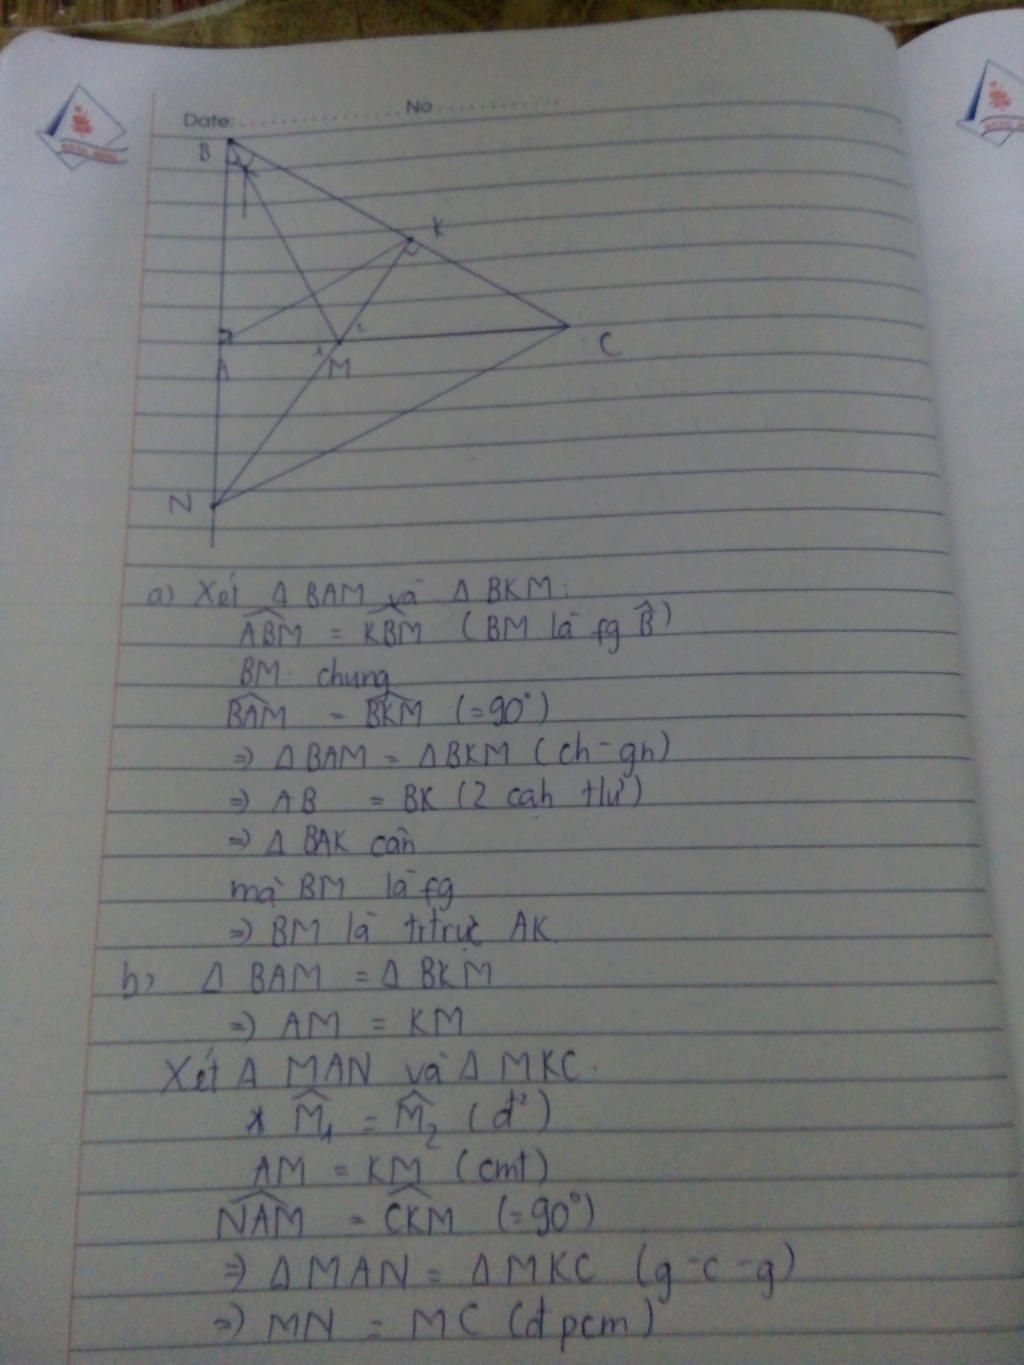 Date: No
B
K
A
1
2
M
C
N
a) Xét Δ BAM và Δ BKM:
ABM = KBM (BM là fg B̂)
BM: chung
BAM = BKM (=90°)
=> Δ BAM = Δ BKM (ch-gn)
=> AB = BK (2 cạh tlư)
=> Δ BAK cân
mà BM là fg
=> BM là trtrực AK.
b) Δ BAM = Δ BKM
=> AM = KM
Xét Δ MAN và Δ MKC.
M̂₁ = M̂₂ (đ²)
AM = KM (cmt)
NAM = CKM (=90°)
=> Δ MAN = Δ MKC (g-c-g)
=> MN = MC (đpcm)